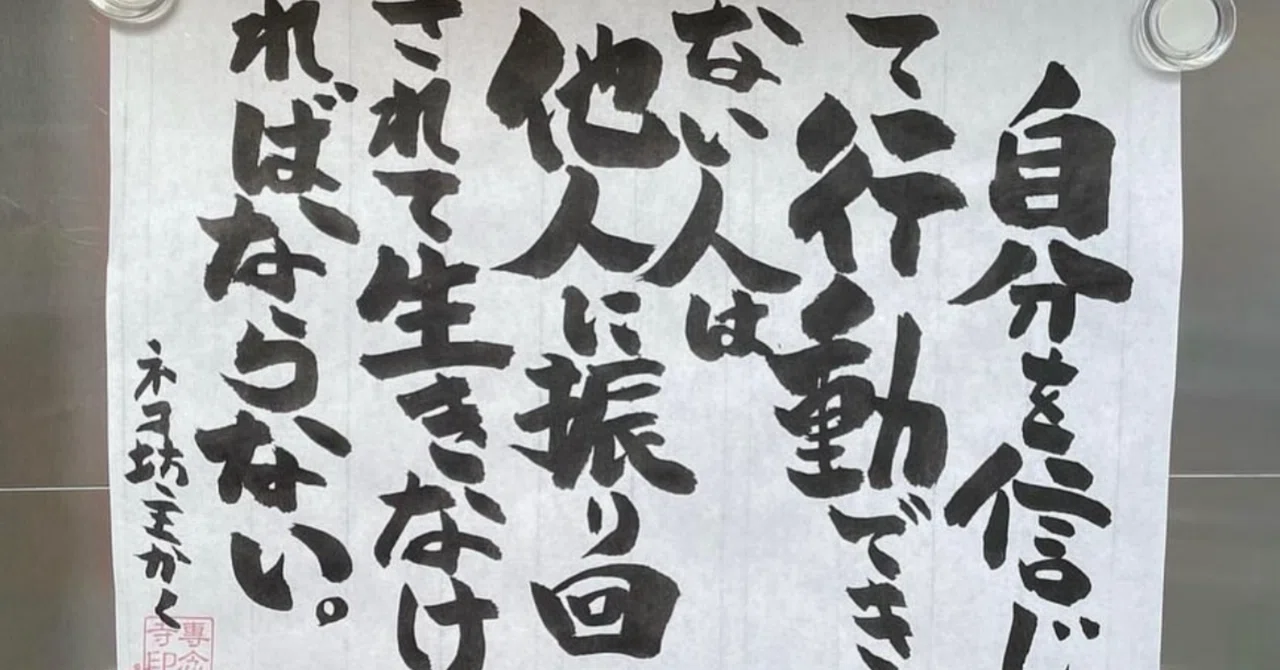 自分を信じ
て行動でき
ない人は
他人に振り回
されて生きなけ
ればならない。
ネコ坊主かく
專念
寺印